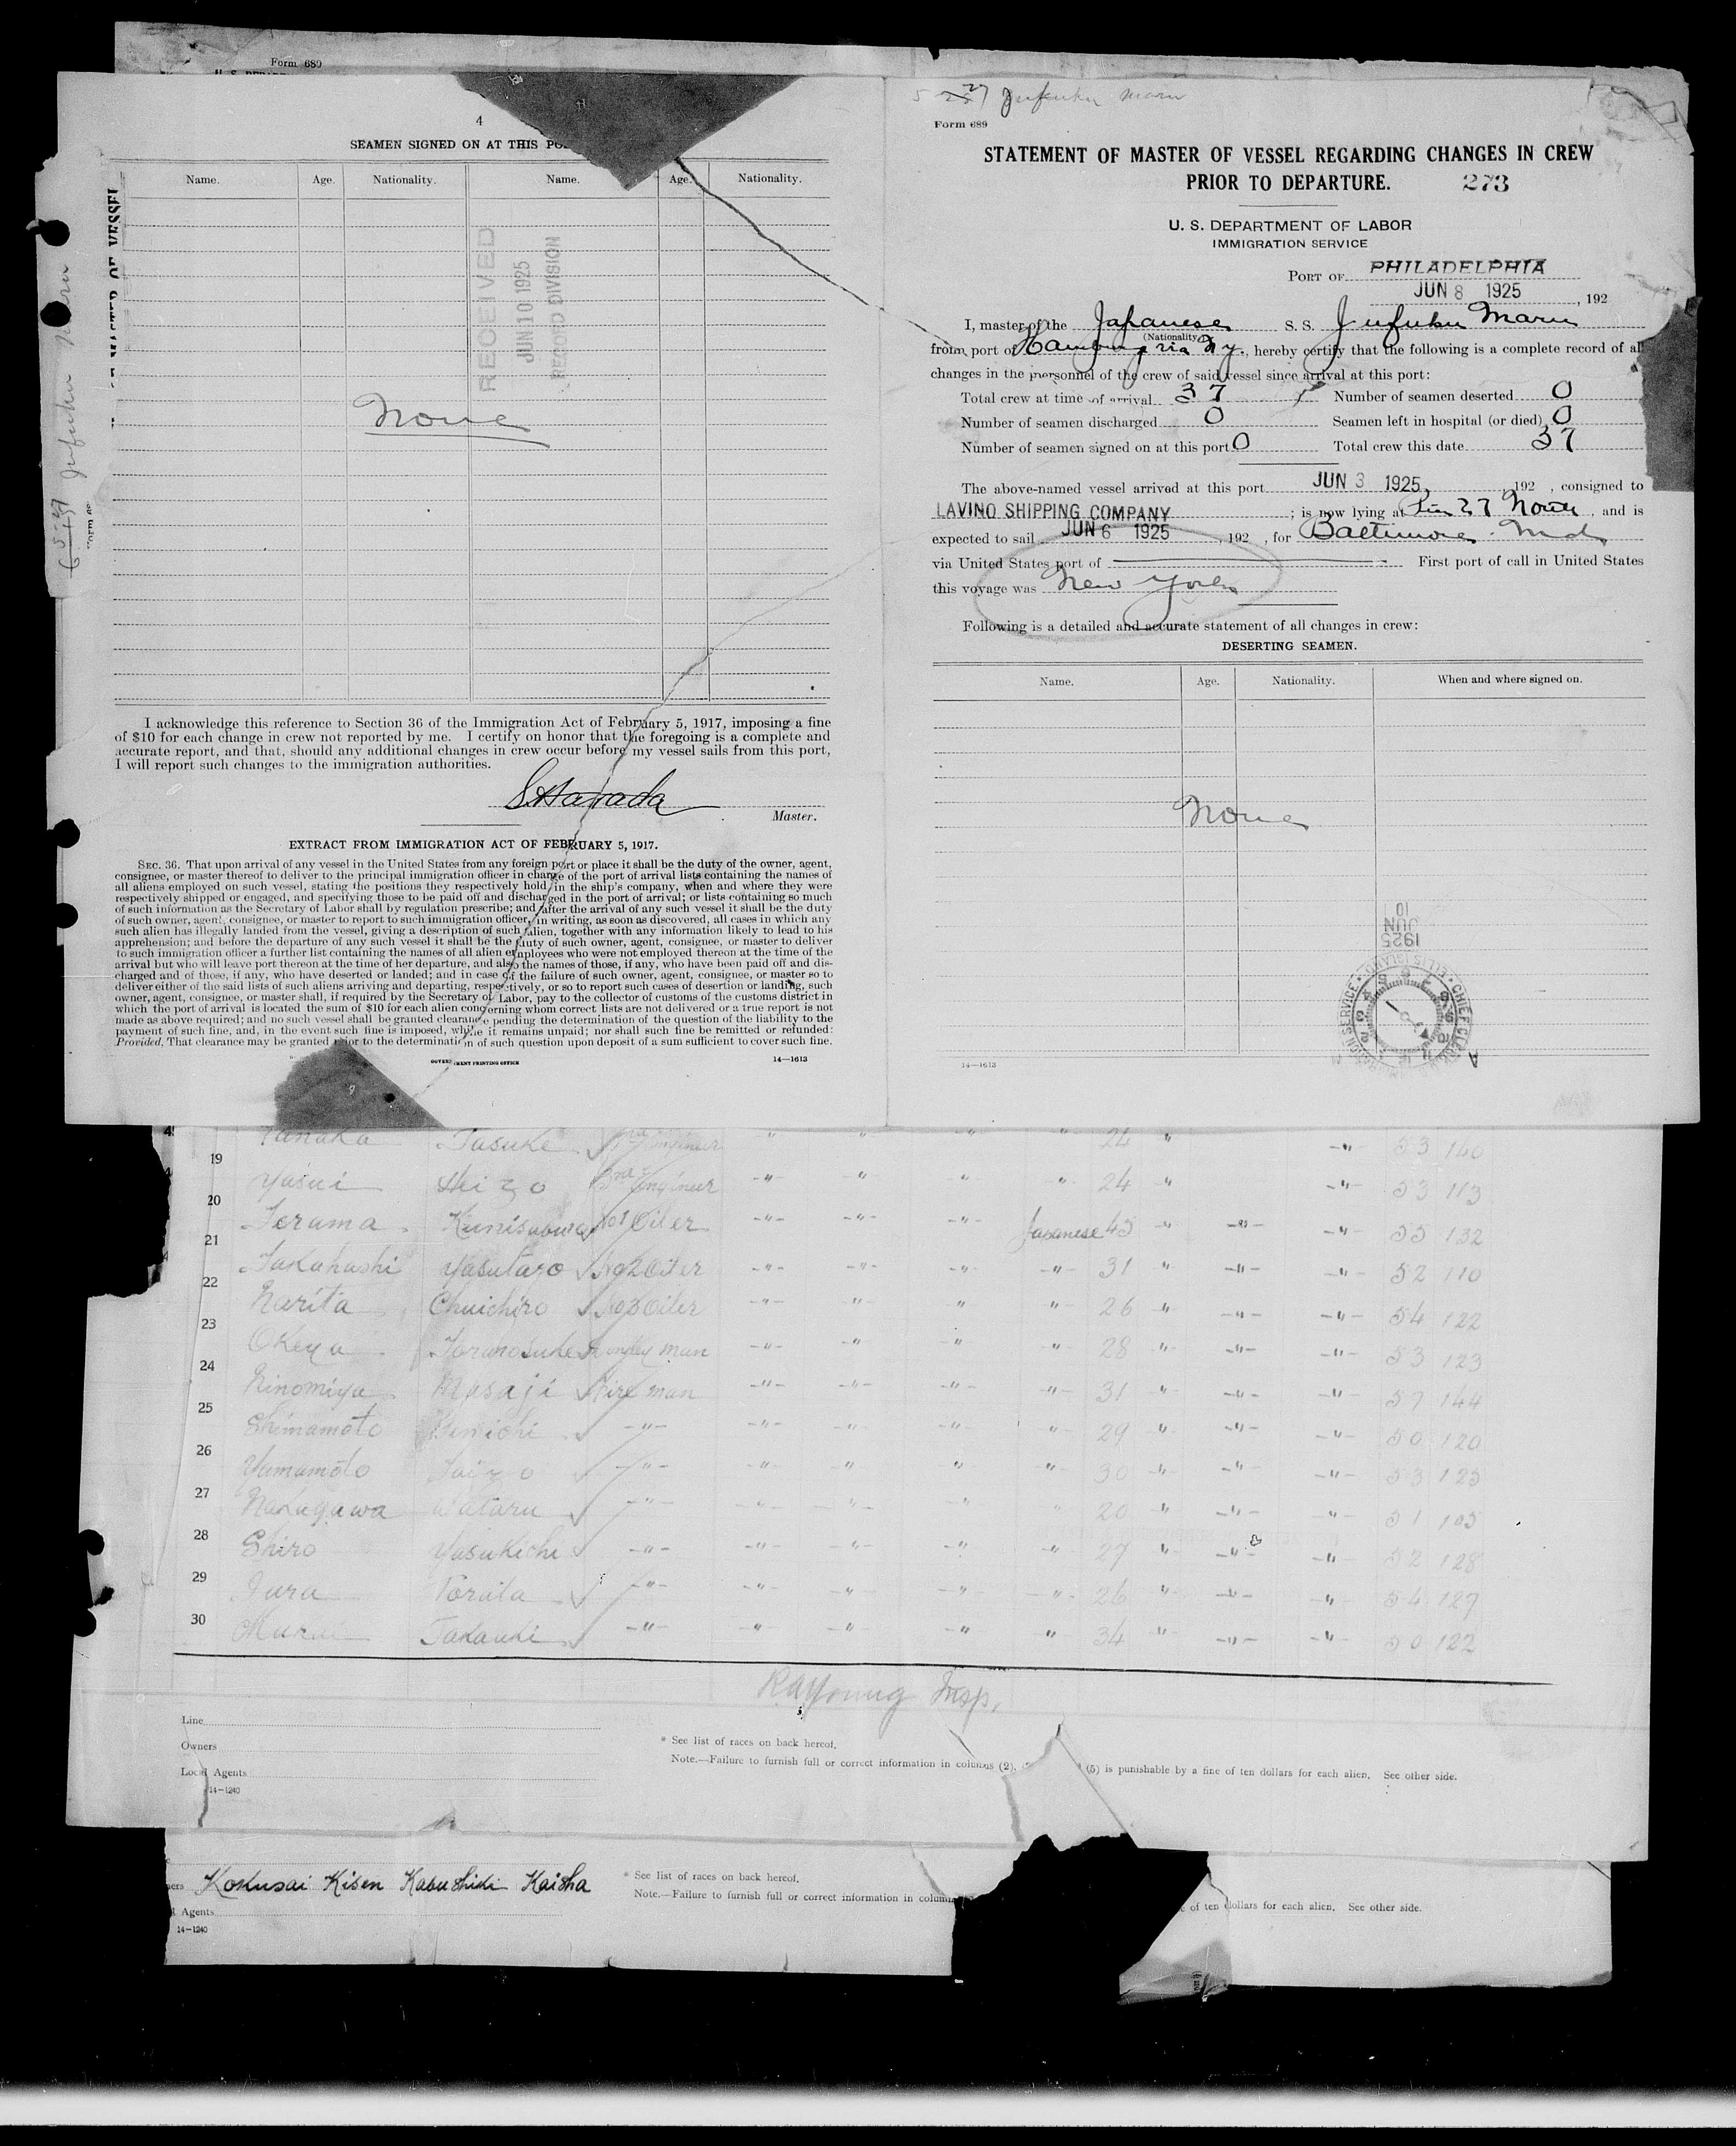 Form 689
4
SEAMEN SIGNED ON AT THIS
Name. Age. Nationality. Name. Age. Nationality.
RECEIVED
JUN 10 1925
RECORD DIVISION
None
I acknowledge this reference to Section 36 of the Immigration Act of February 5, 1917, imposing a fine
of $10 for each change in crew not reported by me. I certify on honor that the foregoing is a complete and
accurate report, and that, should any additional changes in crew occur before my vessel sails from this port,
I will report such changes to the immigration authorities.
S. Harada
Master.
EXTRACT FROM IMMIGRATION ACT OF FEBRUARY 5, 1917.
SEC. 36. That upon arrival of any vessel in the United States from any foreign port or place it shall be the duty of the owner, agent,
consignee, or master thereof to deliver to the principal immigration officer in charge of the port of arrival lists containing the names of
all aliens employed on such vessel, stating the positions they respectively hold in the ship's company, when and where they were
respectively shipped or engaged, and specifying those to be paid off and discharged in the port of arrival; or lists containing so much
of such information as the Secretary of Labor shall by regulation prescribe; and after the arrival of any such vessel it shall be the duty
of such owner, agent, consignee, or master to report to such immigration officer, in writing, as soon as discovered, all cases in which any
such alien has illegally landed from the vessel, giving a description of such alien, together with any information likely to lead to his
apprehension; and before the departure of any such vessel it shall be the duty of such owner, agent, consignee, or master to deliver
to such immigration officer a further list containing the names of all alien employees who were not employed thereon at the time of the
arrival but who will leave port thereon at the time of her departure, and also the names of those, if any, who have been paid off and dis-
charged and of those, if any, who have deserted or landed; and in case of the failure of such owner, agent, consignee, or master so to
deliver either of the said lists of such aliens arriving and departing, respectively, or so to report such cases of desertion or landing, such
owner, agent, consignee, or master shall, if required by the Secretary of Labor, pay to the collector of customs of the customs district in
which the port of arrival is located the sum of $10 for each alien concerning whom correct lists are not delivered or a true report is not
made as above required; and no such vessel shall be granted clearance pending the determination of the question of the liability to the
payment of such fine, and, in the event such fine is imposed, while it remains unpaid; nor shall such fine be remitted or refunded:
Provided, That clearance may be granted prior to the determination of such question upon deposit of a sum sufficient to cover such fine.
GOVERNMENT PRINTING OFFICE 14—1613
Jufuku Maru
Form 689
STATEMENT OF MASTER OF VESSEL REGARDING CHANGES IN CREW
PRIOR TO DEPARTURE. 273
U. S. DEPARTMENT OF LABOR
IMMIGRATION SERVICE
PORT OF PHILADELPHIA
JUN 8 1925, 192
I, master of the Japanese S. S. Jufuku Maru
(Nationality)
from port of Hamburg via Ny., hereby certify that the following is a complete record of all
changes in the personnel of the crew of said vessel since arrival at this port:
Total crew at time of arrival 37 Number of seamen deserted 0
Number of seamen discharged 0 Seamen left in hospital (or died) 0
Number of seamen signed on at this port 0 Total crew this date 37
The above-named vessel arrived at this port JUN 3 1925, 192 , consigned to
LAVINO SHIPPING COMPANY ; is now lying at Pier 27 North, and is
expected to sail JUN 6 1925, 192 , for Baltimore. Md
via United States port of First port of call in United States
this voyage was New York
Following is a detailed and accurate statement of all changes in crew:
DESERTING SEAMEN.
Name. Age. Nationality. When and where signed on.
None
JUN 10 1925
IMMIGRATION SERVICE • ELLIS ISLAND • CHIEF CLERK
14—1613
Tanaka Tasuke 24 " -"- 53 140
19 Yasui Heizo 3rd Engineer -"- " " " 24 " -"- 53 113
20 Terama Kunisaburo No1 Oiler -"- -"- -"- Japanese 45 " -"- -"- 55 132
21 Takahashi Yasutaro No2 Oiler -"- -"- -"- -"- 31 " -"- -"- 52 110
22 Narita Chuichiro No3 Oiler -"- -"- " " 26 " -"- -"- 54 122
23 Okeya Toranosuke Donkey man -"- " " " 28 " -"- -"- 53 123
24 Ninomiya Masaji Fire man -"- -"- -"- -"- 31 " -"- -"- 57 144
25 Shimamoto Benichi -"- -"- -"- -"- " 29 " -"- -"- 50 120
26 Yamamoto Taizo -"- -"- -"- -"- " 30 " -"- -"- 53 125
27 Nakagawa Wataru -"- -"- -"- -"- " 20 " -"- -"- 51 105
28 Shiro Yasukichi -"- -"- -"- -"- -"- 27 " -"- -"- 52 128
29 Torata -"- -"- -"- -"- -"- 26 " -"- -"- 54 127
30 Takauki -"- -"- -"- -"- -"- 34 " -"- -"- 50 122
R.A. Young Insp.
Line
Owners
Local Agents
14—1240
* See list of races on back hereof.
Note.—Failure to furnish full or correct information in columns (2), (5) is punishable by a fine of ten dollars for each alien. See other side.
Kokusai Kisen Kabushiki Kaisha
Agents
14—1240
* See list of races on back hereof.
Note.—Failure to furnish full or correct information in
of ten dollars for each alien. See other side.